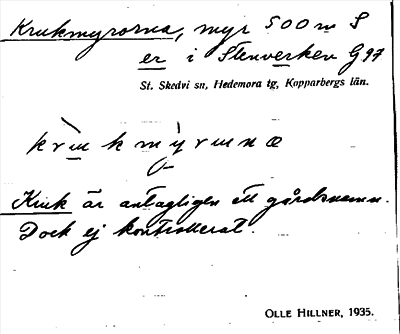 Krukmyrorna, myr 500 m S
er i Stenverken G 97
St. Skedvi sn, Hedemora tg, Kopparbergs län.
krɯkmyrɯnæ
Kruk är antagligen ett gårdsnamn.
Dock ej kontrollerat.
OLLE HILLNER, 1935.